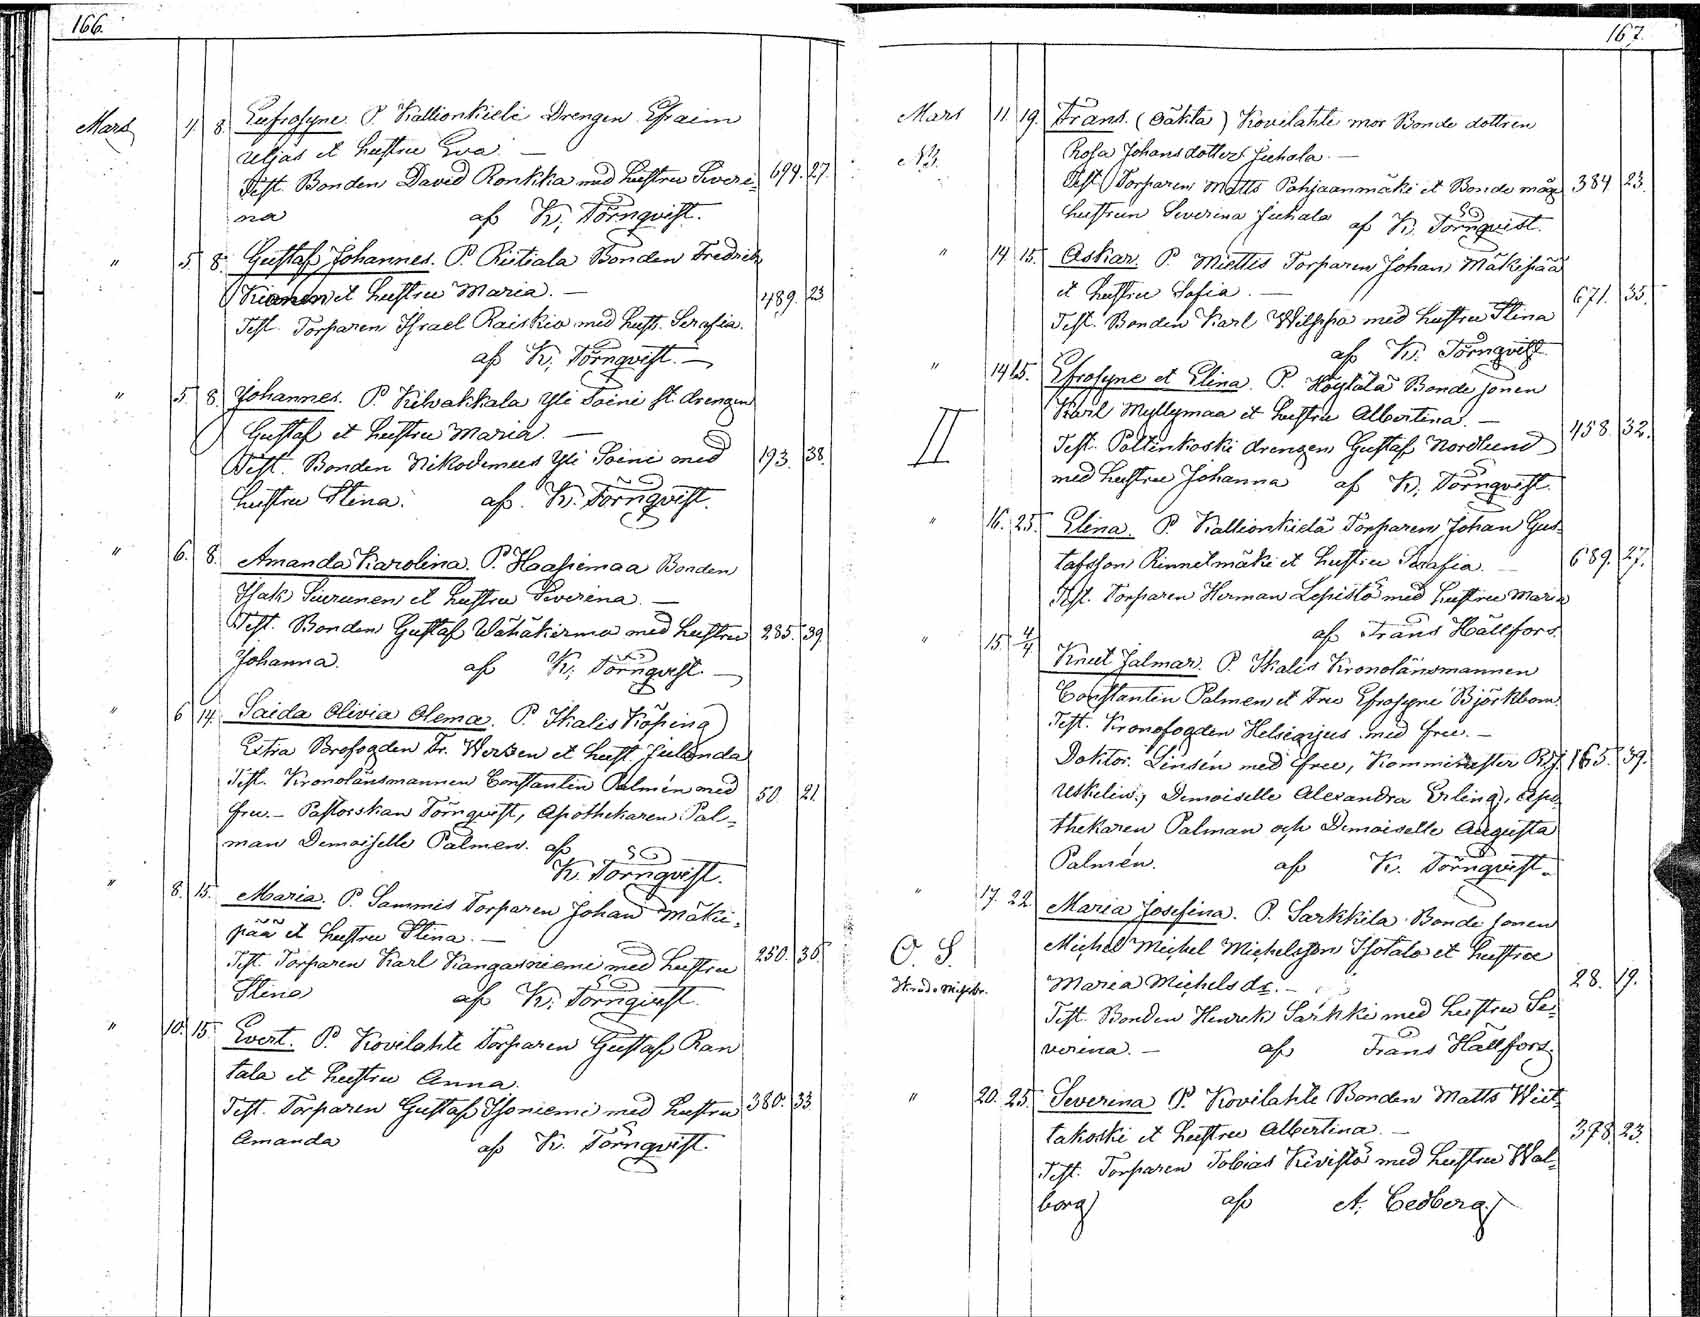 166.
Mars 4. 8. Eufrosyne. P. Kallionkieli Drengen Efraim
Uljas et hustru Eva. —
Test. Bonden David Ronkka med hustru Severi= 694. 27.
na af K. Törnqvist.
" 5. 8. Gustaf Johannes. P. Riitiala Bonden Fredrik
et hustru Maria. — 489. 23
Test. Torparen Israel Raiskio med hust. Serafia.
af K. Törnqvist. —
" 5. 8. Johannes. P. Kilvakkala Yli Soini st. drengen
Gustaf et hustru Maria. —
Test. Bonden Nikodemus Yli Soini med 193. 38.
hustru Stina. af K. Törnqvist.
" 6. 8. Amanda Karolina. P. Haapimaa Bonden
Isak Siurunen et hustru Severina. —
Test. Bonden Gustaf Wähäkirma med hustru 285. 39.
Johanna. af K. Törnqvist. —
" 6 14. Saida Olivia Olema. P. Ikalis Köping
Extra Brofogden Fr. Werzen et hust. Julianda
Test. Kronolänsmannen Constantin Palmén med 50. 21.
fru. — Pastorskan Törnqvist, Apothekaren Pal=
man Demoiselle Palmen. af
K. Törnqvist.
" 8. 15. Maria. P. Sammis Torparen Johan Mäki=
pää et hustru Stina. —
Test. Torparen Karl Kangasniemi med hustru 250. 36.
Stina af K. Törnqvist.
" 10. 15. Evert. P. Kovilahte Torparen Gustaf Ran
tala et hustru Anna.
Test. Torparen Gustaf Isoniemi med hustru 380. 33.
Amanda af K. Törnqvist.
167.
Mars 11. 19. Frans. (oäkta) Kovilahte mor Bonde dottren
NB. Rosa Johansdotter Juhola. —
Test. Torparen Matts Pohjaanmäki et Bonde måg 384 23.
hustrun Severina Juhala af K. Törnqvist.
" 14. 15. Oskar. P. Miettis Torparen Johan Mäkipää
et hustru Sofia. — 671. 35.
Test. Bonden Karl Wilppa med hustru Stina
af K. Törnqvist
" 14 15. Efrosyne et Elina. P. Höytölä Bonde sonen
II Karl Myllymaa et hustru Albertina. — 458. 32.
Test. Poltinkoski drengen Gustaf Nordlund
med hustru Johanna af K. Törnqvist.
" 16. 25. Elina. P. Kallionkielä Torparen Johan Gus=
tafsson Rinnelmäki et hustru Serafia. — 689. 27.
Test. Torparen Herman Lepistö med hustru Maria
af Frans Hällfors.
" 15. 4/4 Knut Jalmar. P. Ikalis Kronolänsmannen
Constantin Palmen et Fru Efrosyne Björkbom.
Test. Kronofogden Helsingius med fru. —
Doktor Linsén med fru, Komminister 165. 39.
Uskelius, Demoiselle Alexandra Erling, Apo=
thekaren Palman och Demoiselle Augusta
Palmén. af K. Törnqvist.
" 17. 22. Maria Josefina. P. Sarkkila Bonde sonen
O. S. Michel Michel Michelsson Isotalo et hustru
Maria Michels dr. — 28. 19.
Test. Bonden Henrik Sarkki med hustru Se=
verina. — af Frans Hällfors.
" 20. 25. Severina P. Kovilahte Bonden Matts Wiit=
takoski et hustru Albertina. — 378. 23.
Test. Torparen Tobias Kivistö med hustru Wal=
borg af A. Cedberg.